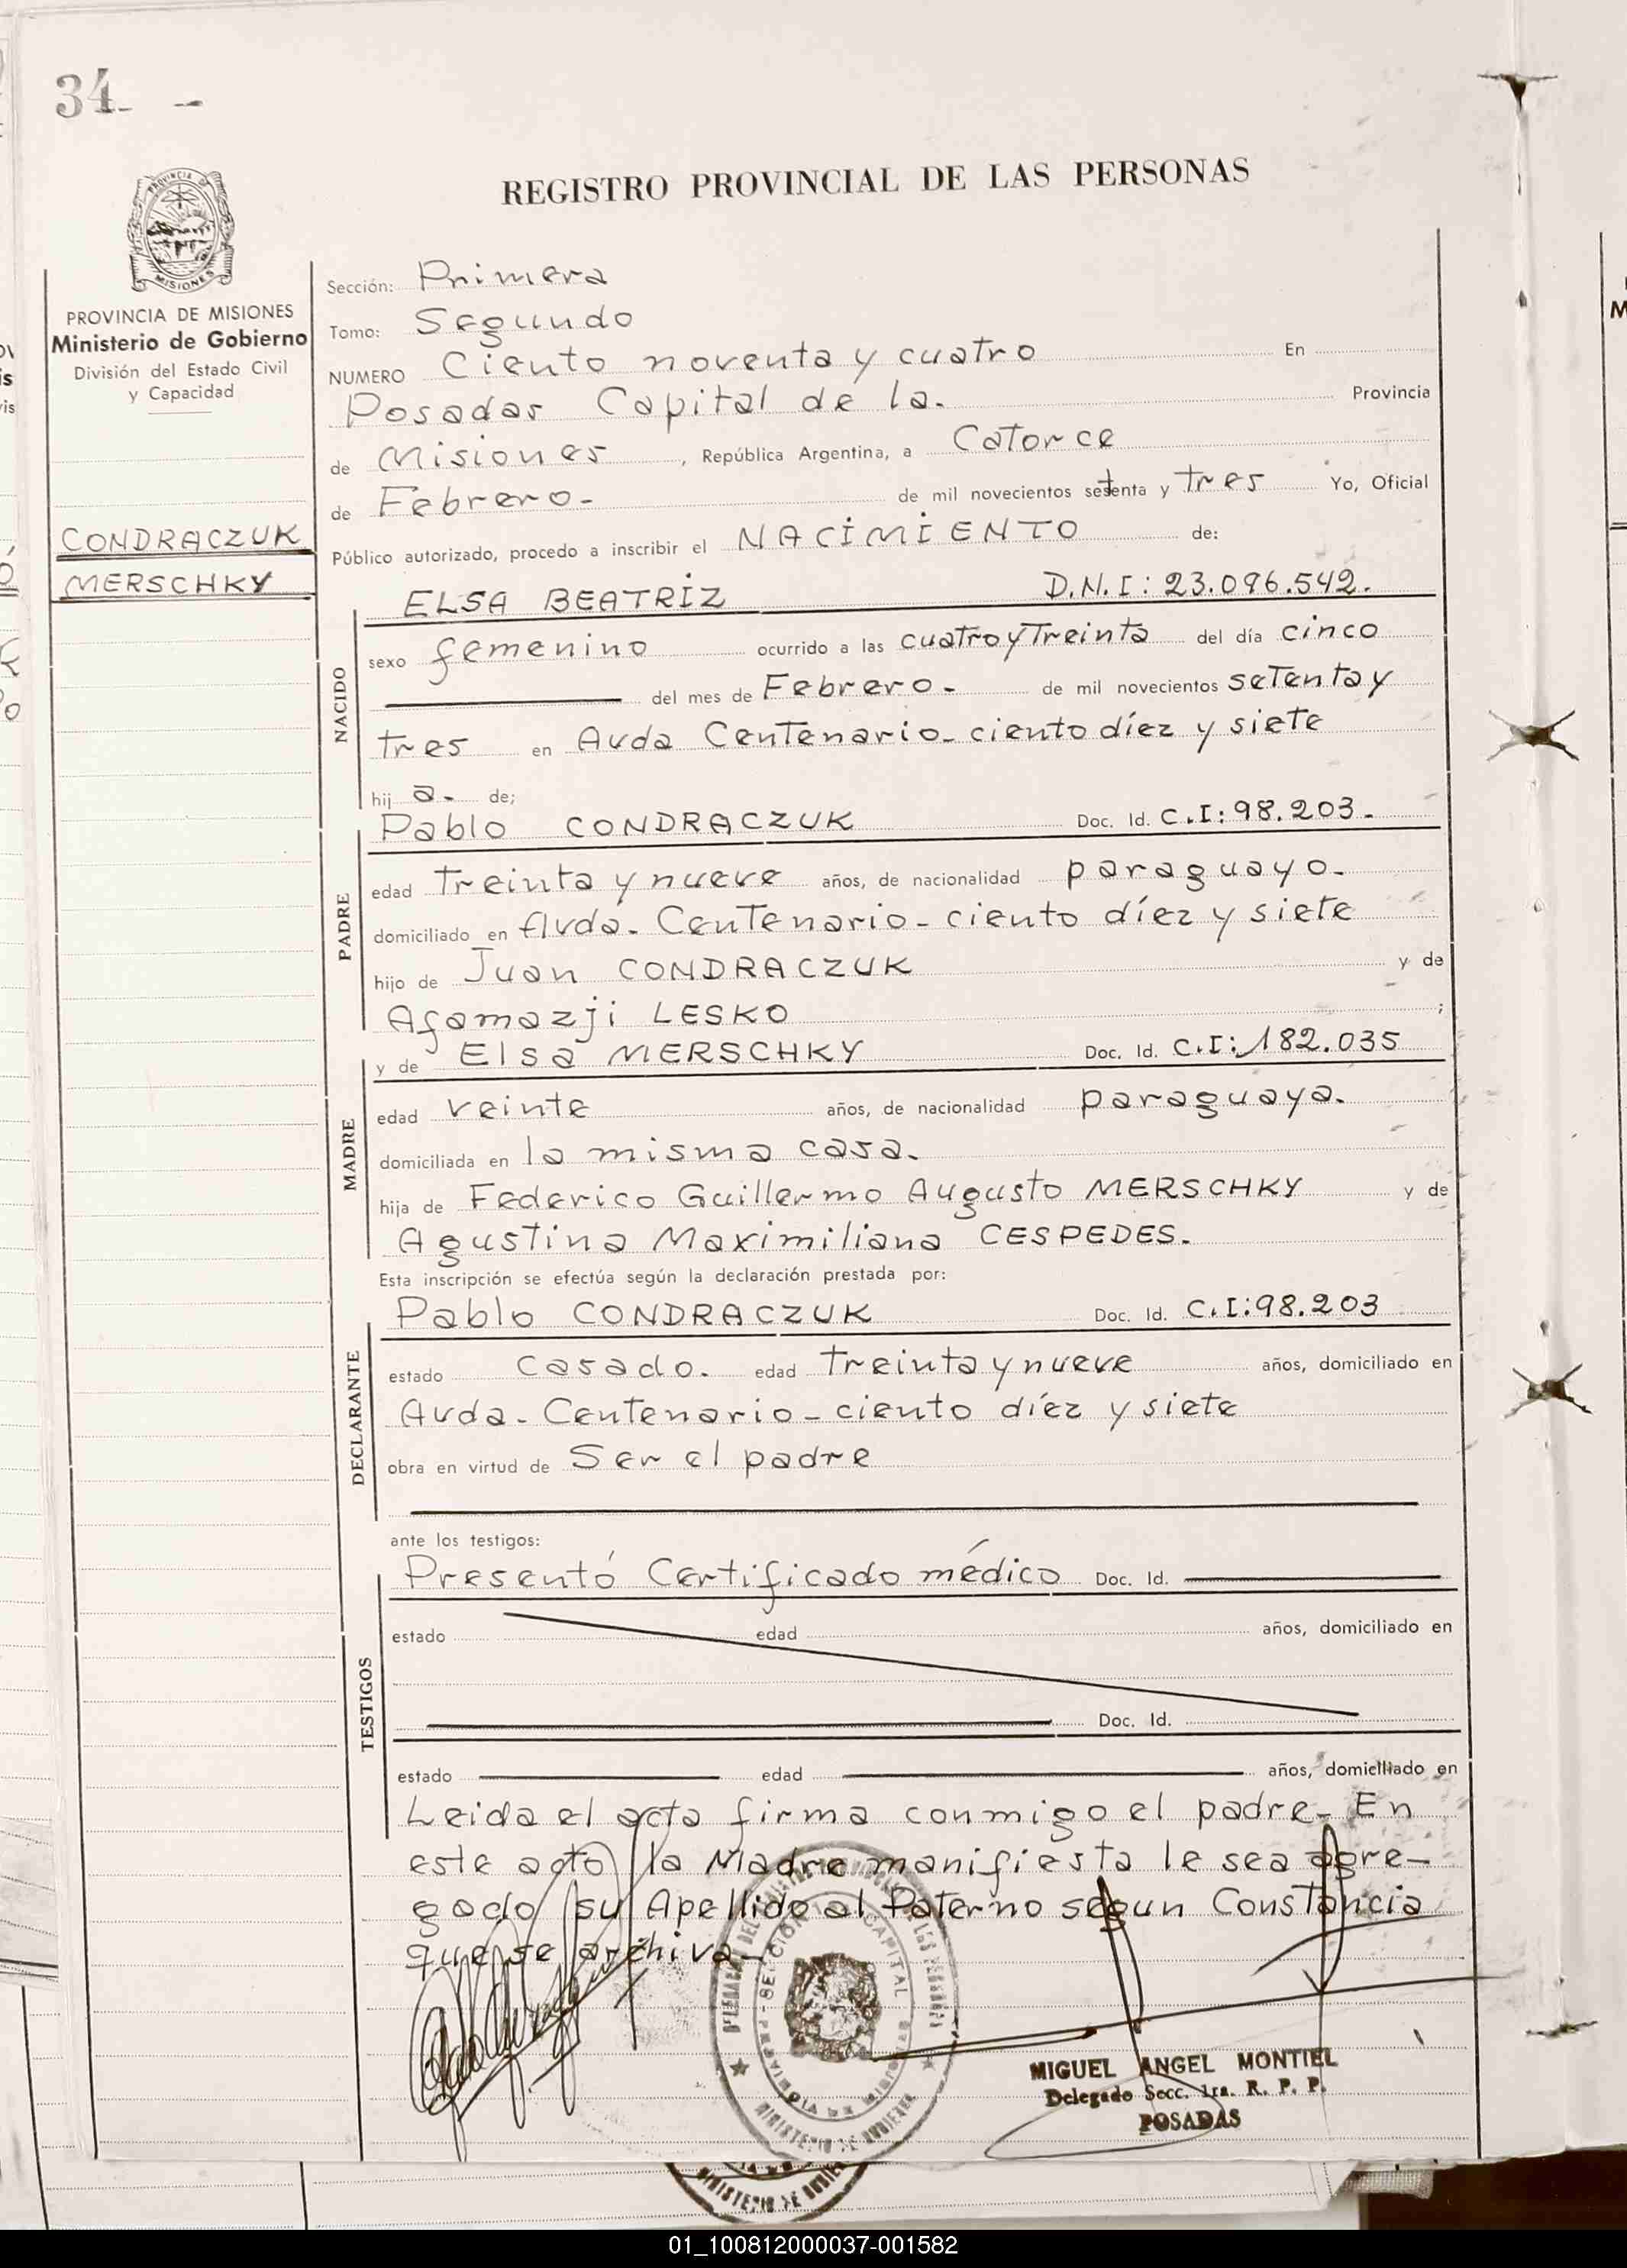 34 -
REGISTRO PROVINCIAL DE LAS PERSONAS
PROVINCIA
MISIONES
PROVINCIA DE MISIONES
Ministerio de Gobierno
División del Estado Civil
y Capacidad
CONDRACZUK
MERSCHKY
Sección: Primera
Tomo: Segundo
NUMERO Ciento noventa y cuatro En
Posadas Capital de la. Provincia
de Misiones, República Argentina, a Catorce
de Febrero- de mil novecientos setenta y tres Yo, Oficial
Público autorizado, procedo a inscribir el NACIMIENTO de:
ELSA BEATRIZ D.N.I: 23.096.542.
NACIDO
sexo femenino ocurrido a las cuatro y Treinta del día cinco
del mes de Febrero- de mil novecientos setenta y
tres en Avda Centenario- ciento díez y siete
hij a- de;
Pablo CONDRACZUK Doc. Id. C.I: 98.203-
PADRE
edad Treinta y nueve años, de nacionalidad paraguayo-
domiciliado en Avda- Centenario- ciento díez y siete
hijo de Juan CONDRACZUK y de
Agamazji LESKO ;
y de Elsa MERSCHKY Doc. Id. C.I: 182.035
MADRE
edad veinte años, de nacionalidad paraguaya.
domiciliada en la misma casa.
hija de Federico Guillermo Augusto MERSCHKY y de
Agustina Maximiliana CESPEDES.
Esta inscripción se efectúa según la declaración prestada por:
Pablo CONDRACZUK Doc. Id. C.I: 98.203
DECLARANTE
estado casado. edad Treinta y nueve años, domiciliado en
Avda- Centenario- ciento díez y siete
obra en virtud de Ser el padre
ante los testigos:
Presentó Certificado médico Doc. Id.
TESTIGOS
estado edad años, domiciliado en
Doc. Id.
estado edad años, domiciliado en
Leida el acta firma conmigo el padre- En
este acto la Madre manifiesta le sea agre-
gado su Apellido al Paterno segun Constancia
que se archiva-
MIGUEL ANGEL MONTIEL
Delegado Secc. 1ra. R. P. P.
POSADAS
MINISTERIO DE GOBIERNO
01_100812000037-001582